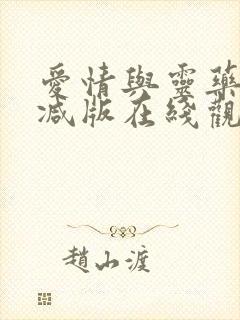 愛情與靈藥
減版在綫觀
趙山渡